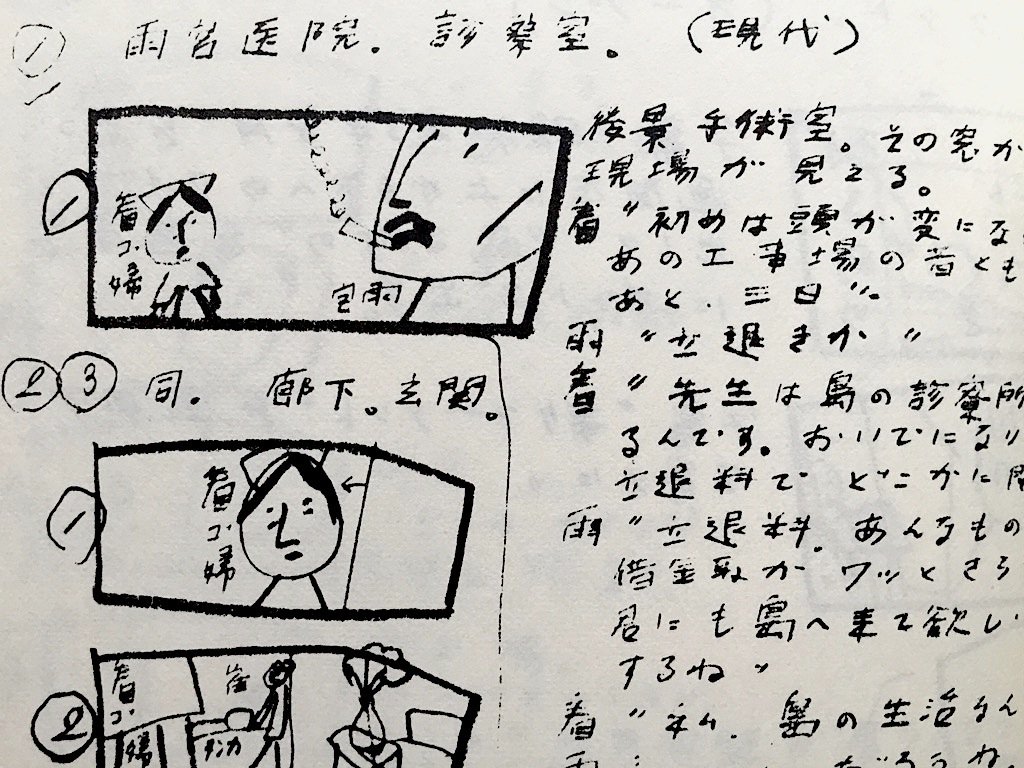 ① 雨宮医院。診察室。(現代)
①
看ゴ婦
雨宮
後景 手術室。その窓か
現場が見える。
看〝初めは頭が変にな
あの工事場の音とも
あと、三日〟
雨〝立退きか〟
②③ 同。廊下。玄関。
看〝先生は島の診療所
るんです。おいでになり
立退料で どこかに開
①
看ゴ婦
雨〝立退料。あんなもの
借金取が ワッとさら
君にも島へ来て欲し
するね〟
②
看ゴ婦
タンカ
看〝私、島の生活なん